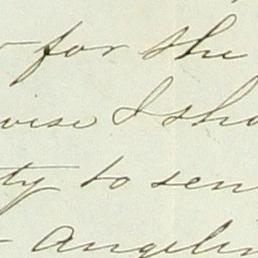 for the
wise I sho
ty to sen
Angelin